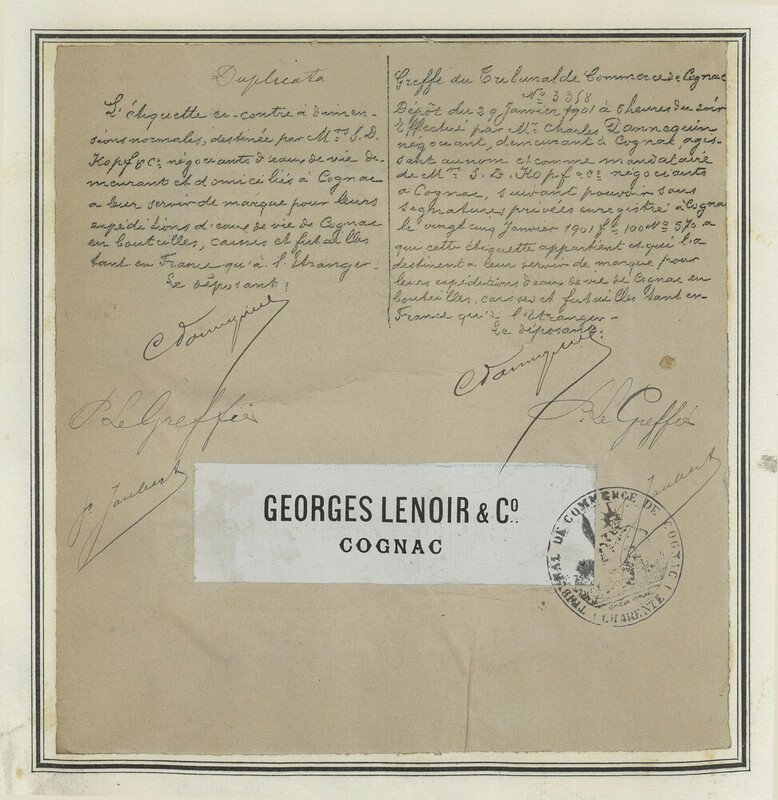 Duplicata
L'étiquette ci-contre à dimen-
sions normales, destinée par Mrs S. D.
Kopf & Co négociants d'eaux de vie de-
meurant et domiciliés à Cognac
a leur servir de marque pour leurs
expéditions d'eaux de vie de Cognac
en bouteilles, caisses et futailles
tant en France qu'à l'Etranger.
Le déposant:
Greffe du Tribunal de Commerce de Cognac
No 3358
Dépôt du 29 Janvier 1901 à 5 heures du soir
Effectué par Mr Charles Dannequin
négociant, demeurant à Cognac, agis-
sant au nom et comme mandataire
de Mrs S. D. Kopf & Co négociants
à Cognac, suivant pouvoir sous
signatures privées enregistré à Cognac
le vingt cinq Janvier 1901 fo 100 No 570 a
qui cette étiquette appartient et qui la
destinent a leur servir de marque pour
leurs expéditions d'eaux de vie de Cognac en
bouteilles, caisses et futailles tant en
France qu'à l'Etranger-
Le déposant:
P. Le Greffier
P. Le Greffier
P. Joubert
Joubert
GEORGES LENOIR & Co.
COGNAC
TRIBUNAL DE COMMERCE DE COGNAC
(CHARENTE)